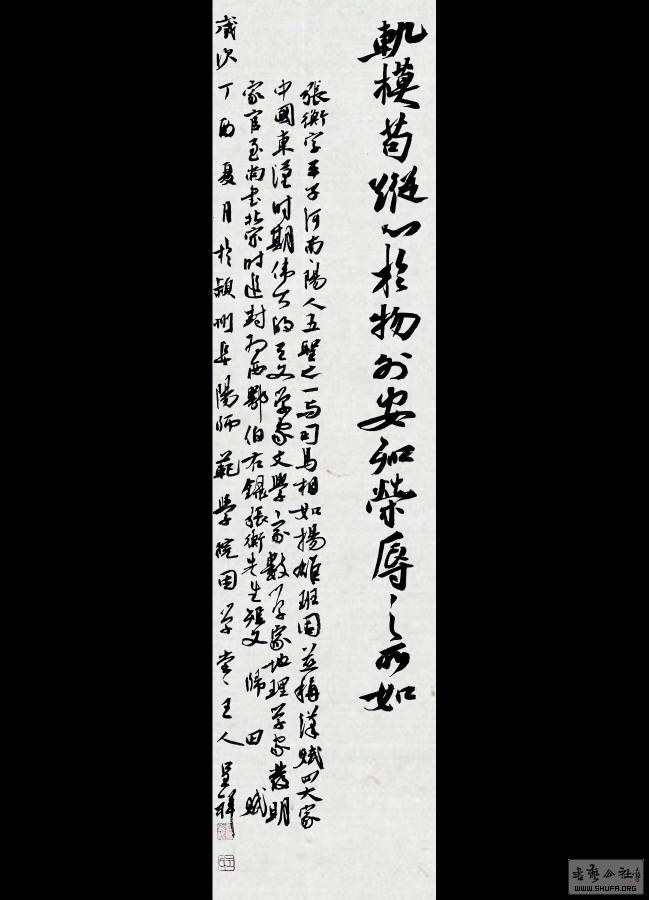 軌模苟縱心於物外安知榮辱之所如
張衡字平子河南南陽人五聖之一与司馬相如揚雄班固並稱漢賦四大家
中國東漢时期偉大的天文学家文學家數学家地理学家發明
家官至尚书北宋时追封为西鄂伯右録張衡先生短文歸田賦
歲次丁酉夏月於潁州阜陽師範學院国学堂主人呈祥
書藝公社
WWW.SHUFA.ORG